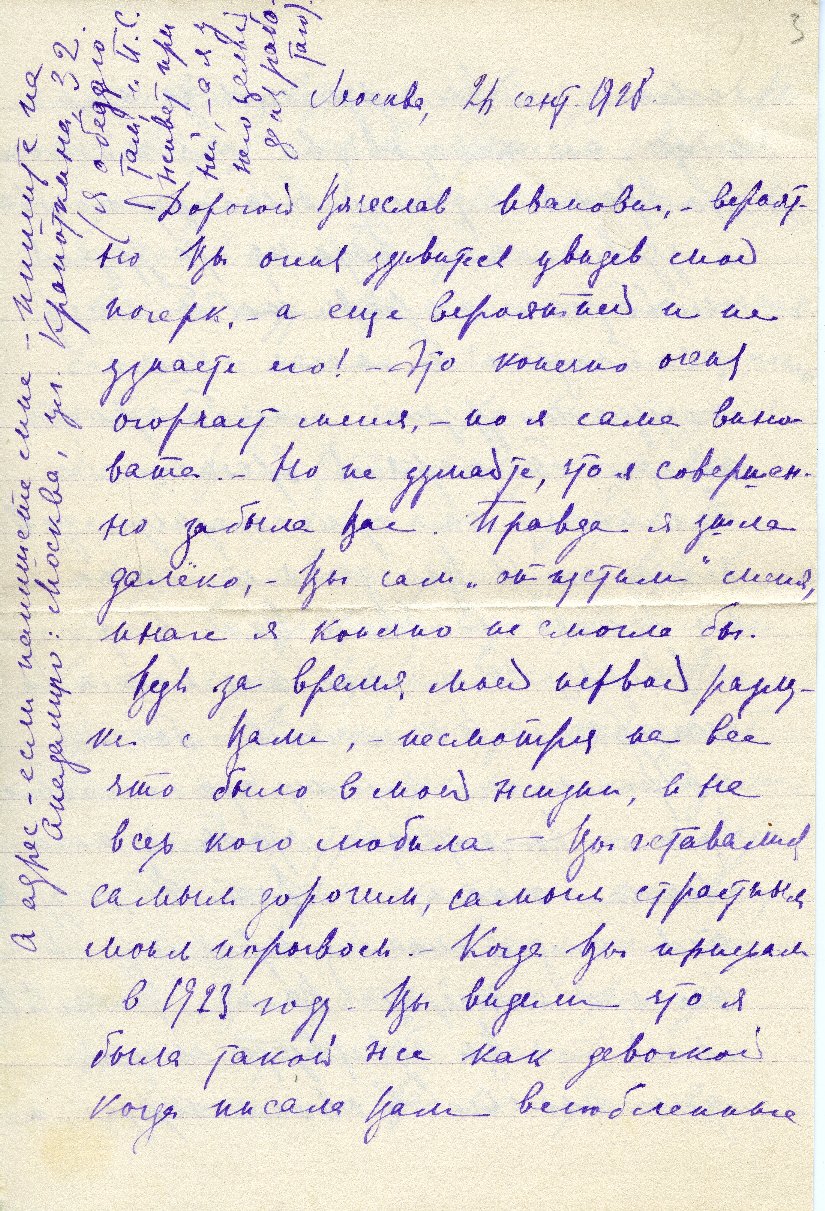 3
Москва, 24 сент 1928
Дорогой Вячеслав Иванович, – вероят-
но Вы очень удивитесь увидев мой
почерк, – а еще вероятней и не
узнаете его! – Это конечно очень
огорчает меня, – но я сама вино-
вата. – Но не думайте, что я совершен-
но забыла Вас. Правда я ушла
далёко, – Вы сам „отпустили" меня,
иначе я конечно не смогла бы.
Ведь за время моей первой разлу-
ки с Вами, – несмотря на все
что было в моей жизни, и на
всех кого любила – Вы оставались
самым дорогим, самым страстным
моим порывом. – Когда Вы приехали
в 1923 году – Вы видели что я
была такой же как девочкой
когда писала Вам влюбленные
А адрес – если напишете мне – пишите на
Москва, ул. Кропоткина, 32.
(я обедаю
там, и П. С.
живет при
ней, – а я у
него целый
день рабо-
таю).